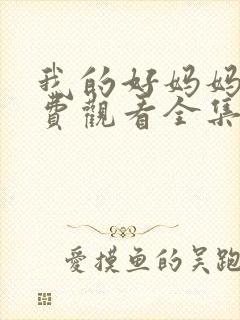 我的好妈妈
费觀看全集
愛摸鱼的吴跑